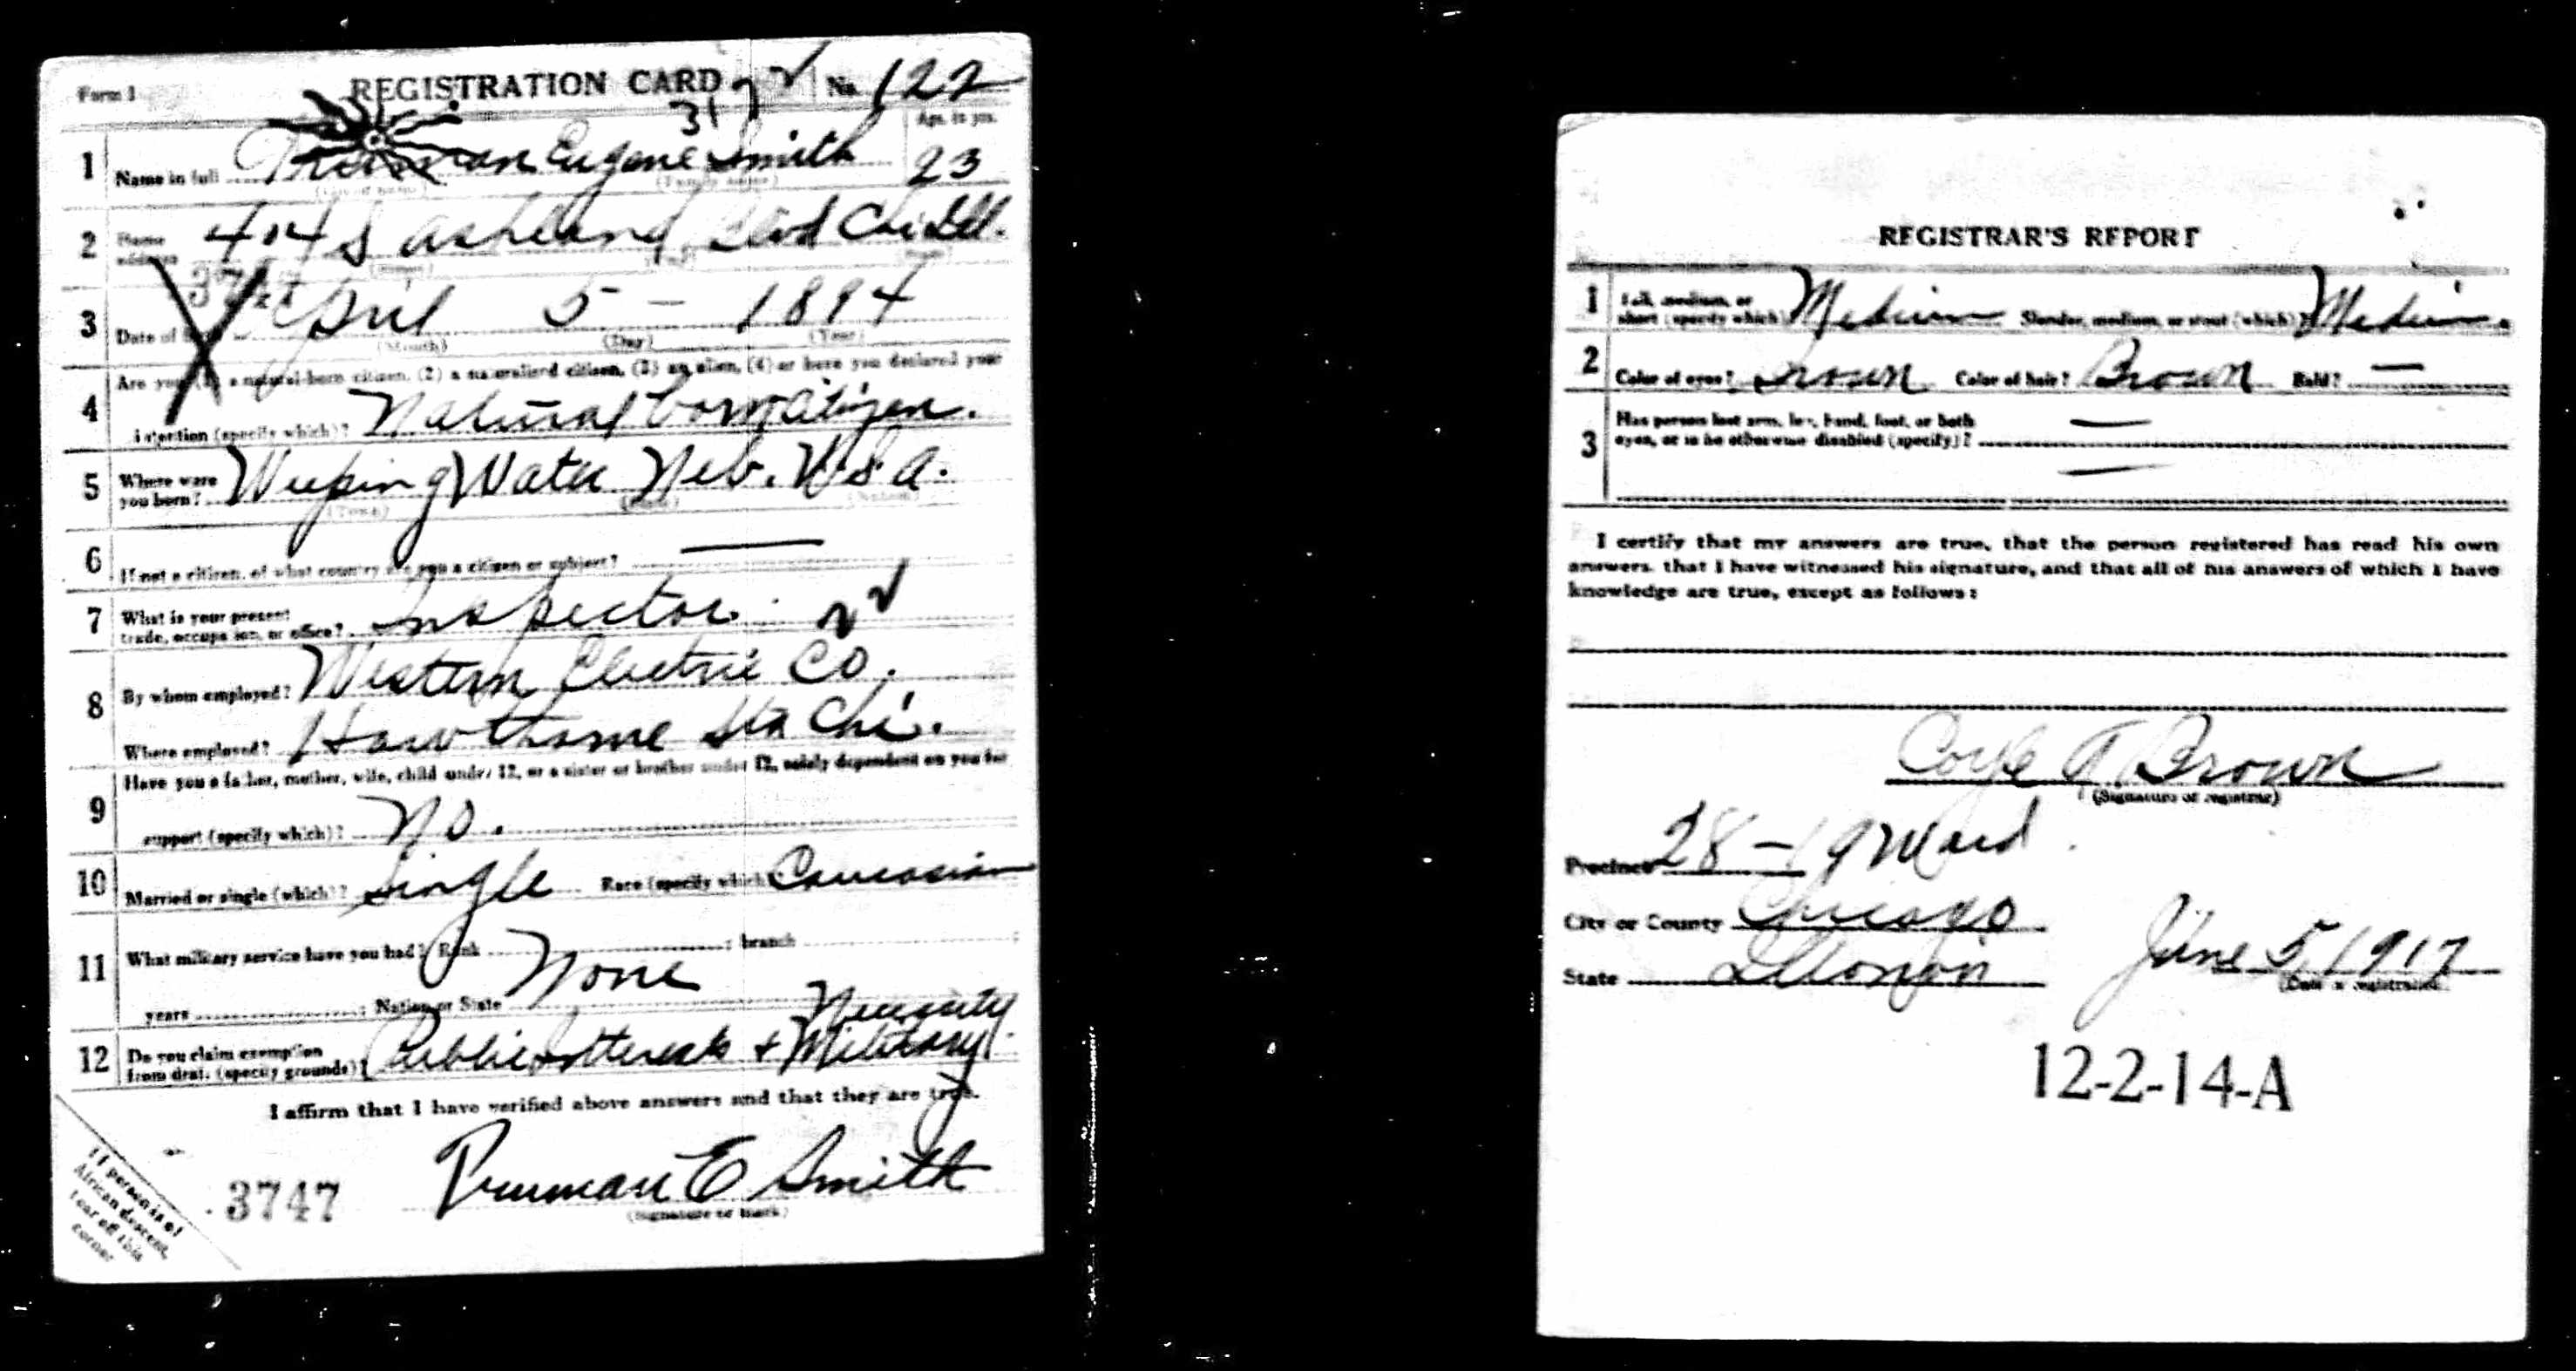 Form 1 REGISTRATION CARD No. 122
31
Age, in yrs.
1 Name in full Truman Eugene Smith 23
(Given name) (Family name)
2 Home address 404 S Ashland Blvd Chi Ill.
3 Date of April 5 - 1894
(Month) (Day) (Year)
Are you (1) a natural-born citizen, (2) a naturalized citizen, (3) an alien, (4) or have you declared your
4 intention (specify which)? Natural born Citizen.
5 Where were you born? Weeping Water Neb. U.S.A.
(Town) (State) (Nation)
6 If not a citizen, of what country are you a citizen or subject? —
7 What is your present trade, occupation, or office? Inspector
8 By whom employed? Western Electric Co.
Where employed? Hawthorne Sta Chi.
Have you a father, mother, wife, child under 12, or a sister or brother under 12, solely dependent on you for
9 support (specify which)? No.
10 Married or single (which)? Single Race (specify which) Caucasian
11 What military service have you had? Rank ; branch ;
years ; Nation or State None
Necessity
12 Do you claim exemption from draft (specify grounds)? Public Interests + Military
I affirm that I have verified above answers and that they are true.
Truman E Smith
(Signature or mark)
3747
If person is of
African descent,
tear off this
corner
REGISTRAR'S REPORT
1 Tall, medium, or short (specify which)? Medium Slender, medium, or stout (which)? Medium.
2 Color of eyes? Brown Color of hair? Brown Bald? —
3 Has person lost arm, leg, hand, foot, or both eyes, or is he otherwise disabled (specify)? —
—
I certify that my answers are true, that the person registered has read his own
answers, that I have witnessed his signature, and that all of his answers of which I have
knowledge are true, except as follows:
Brown
(Signature of registrar)
Precinct 28 - 19 Ward
City or County Chicago
State June 5 1917
(Date of registration)
12-2-14-A